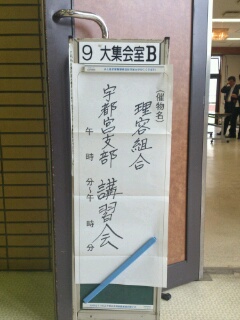 9 大集会室B
(催物名)
理容組合
宇都宮支部 講習会
午 時 分～午 時 分